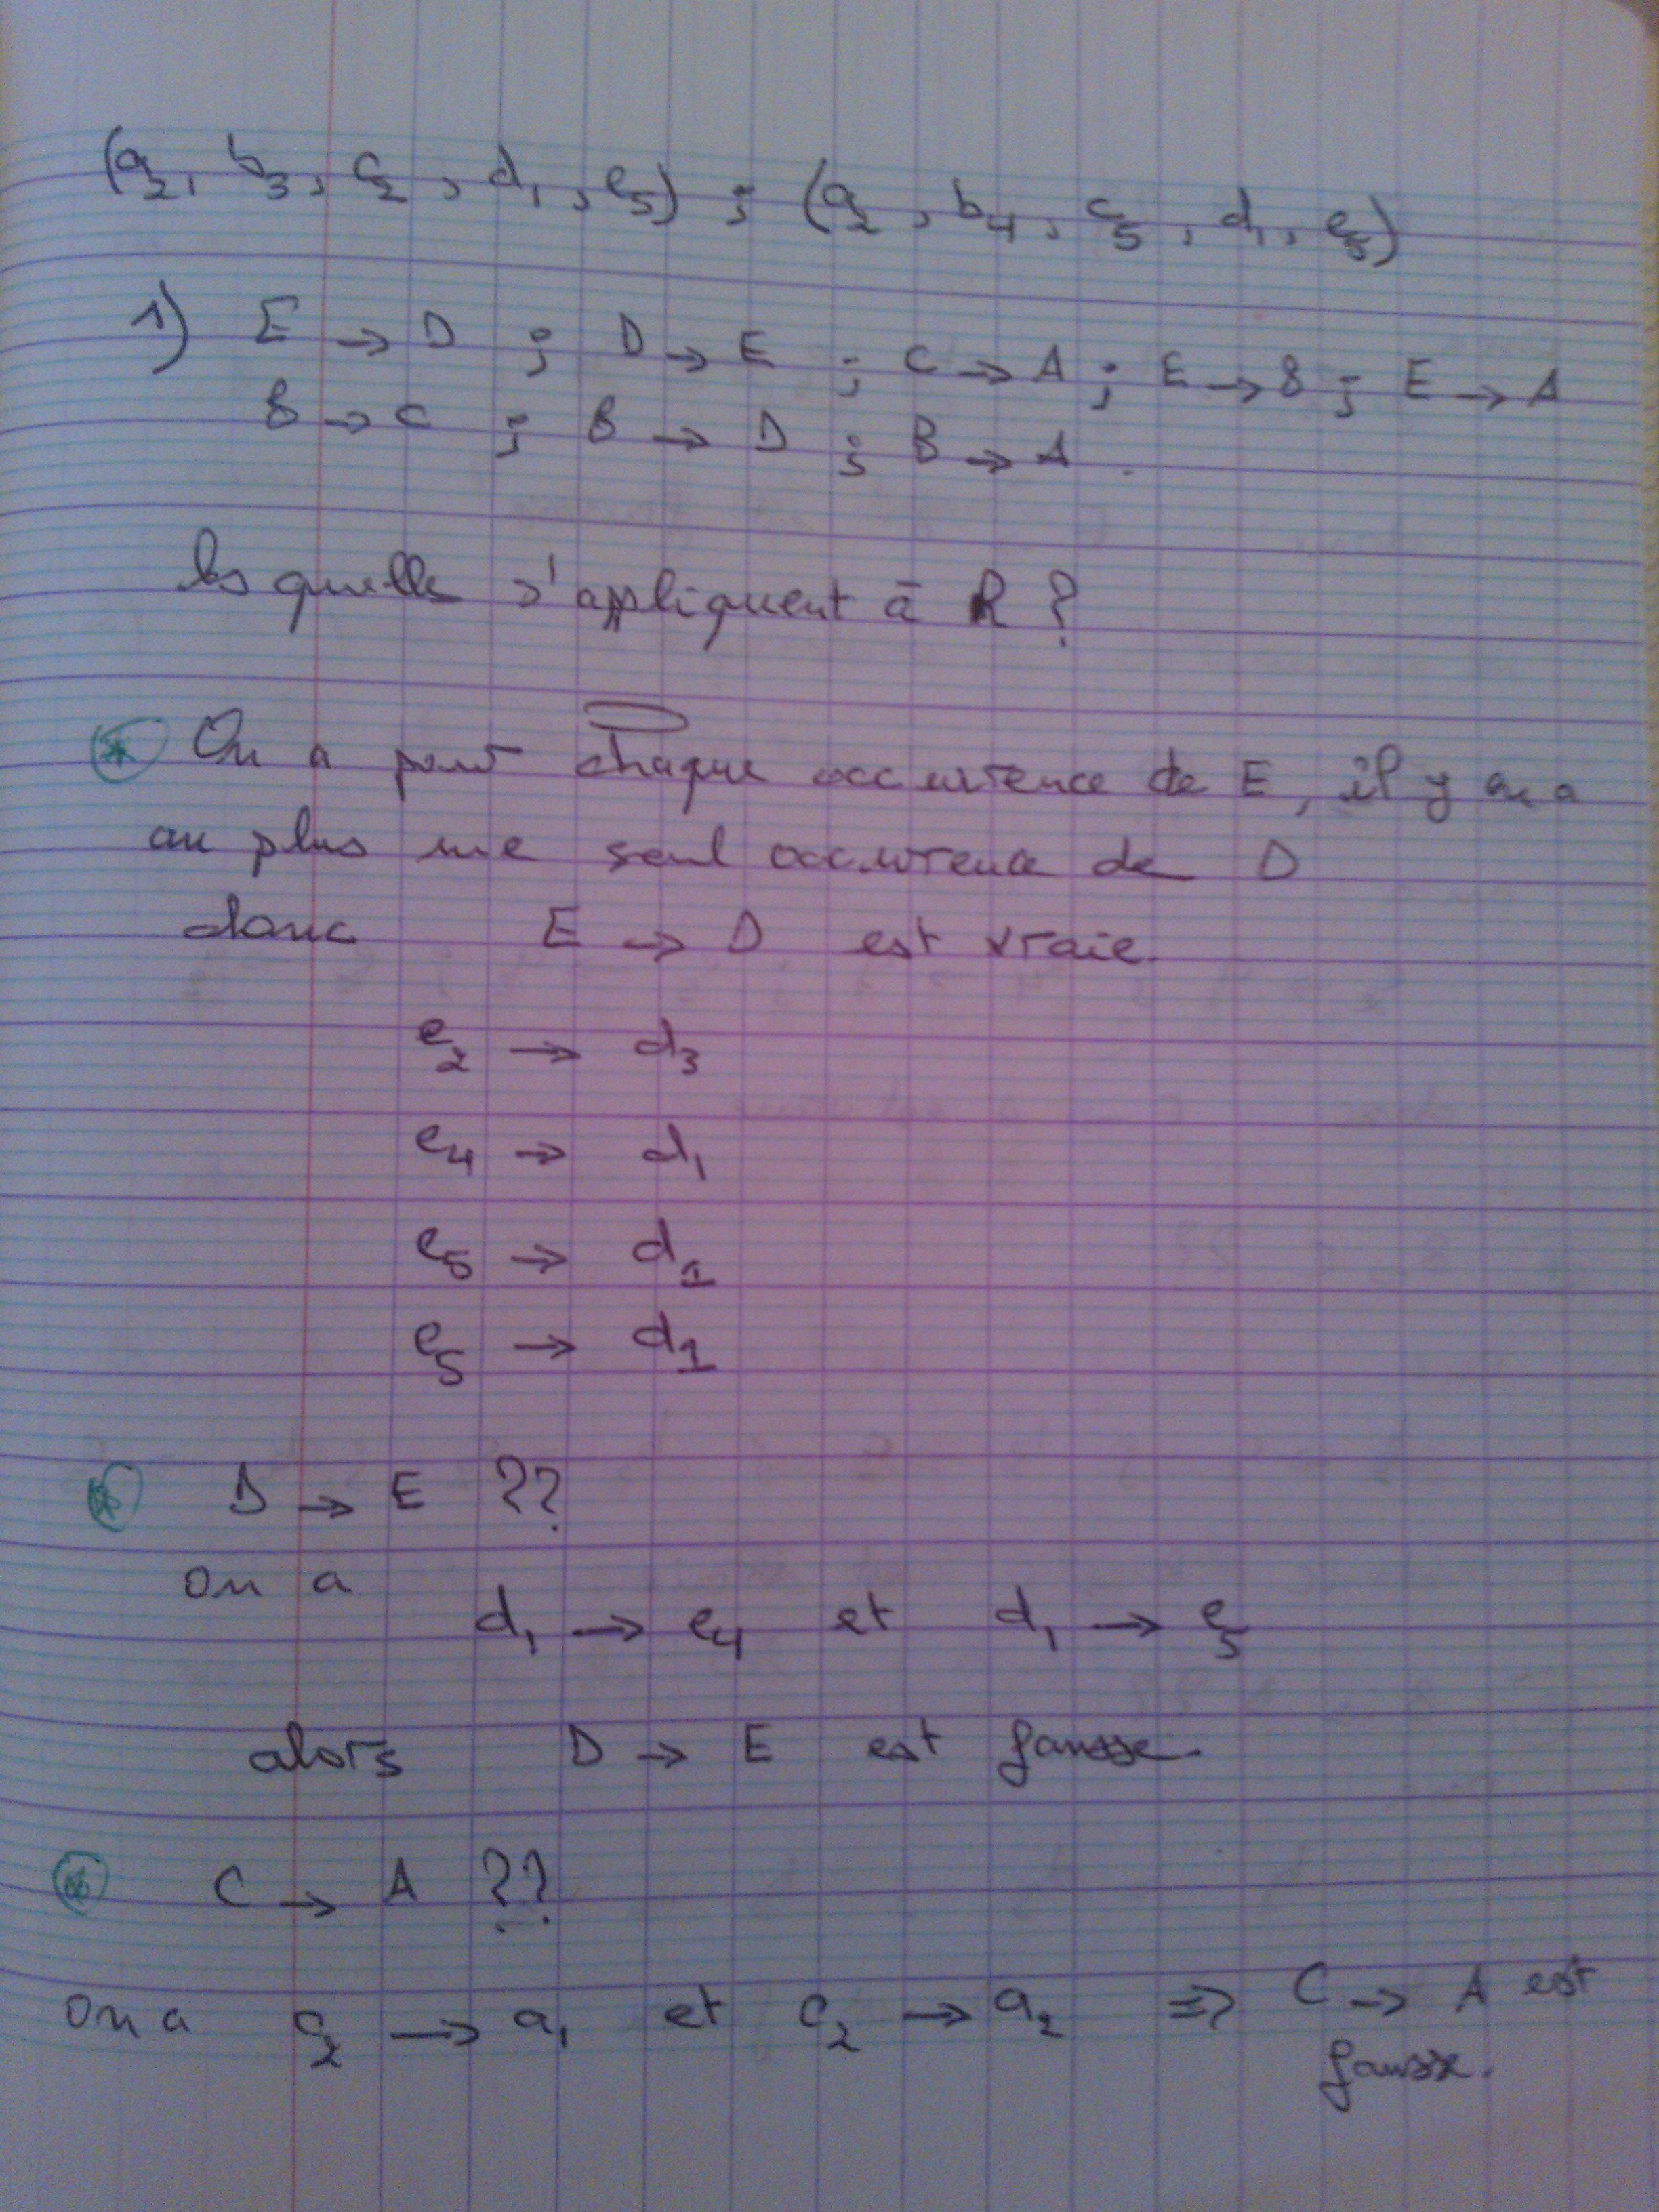 (a₂, b₃, c₂, d₁, e₅) ; (a₂, b₄, c₅, d₁, e₅)
1) E → D ; D → E ; C → A ; E → B ; E → A
B → C ; B → D ; B → A .
les quelles s'appliquent à R ?
On a pour chaque occurrence de E, il y en a
au plus une seul occurrence de D
donc E → D est vraie.
e₂ → d₃
e₄ → d₁
e₅ → d₁
e₅ → d₁
D → E ??
on a
d₁ → e₄ et d₁ → e₅
alors D → E est fausse.
C → A ??
on a c₂ → a₁ et c₂ → a₂ => C → A est
fausse.